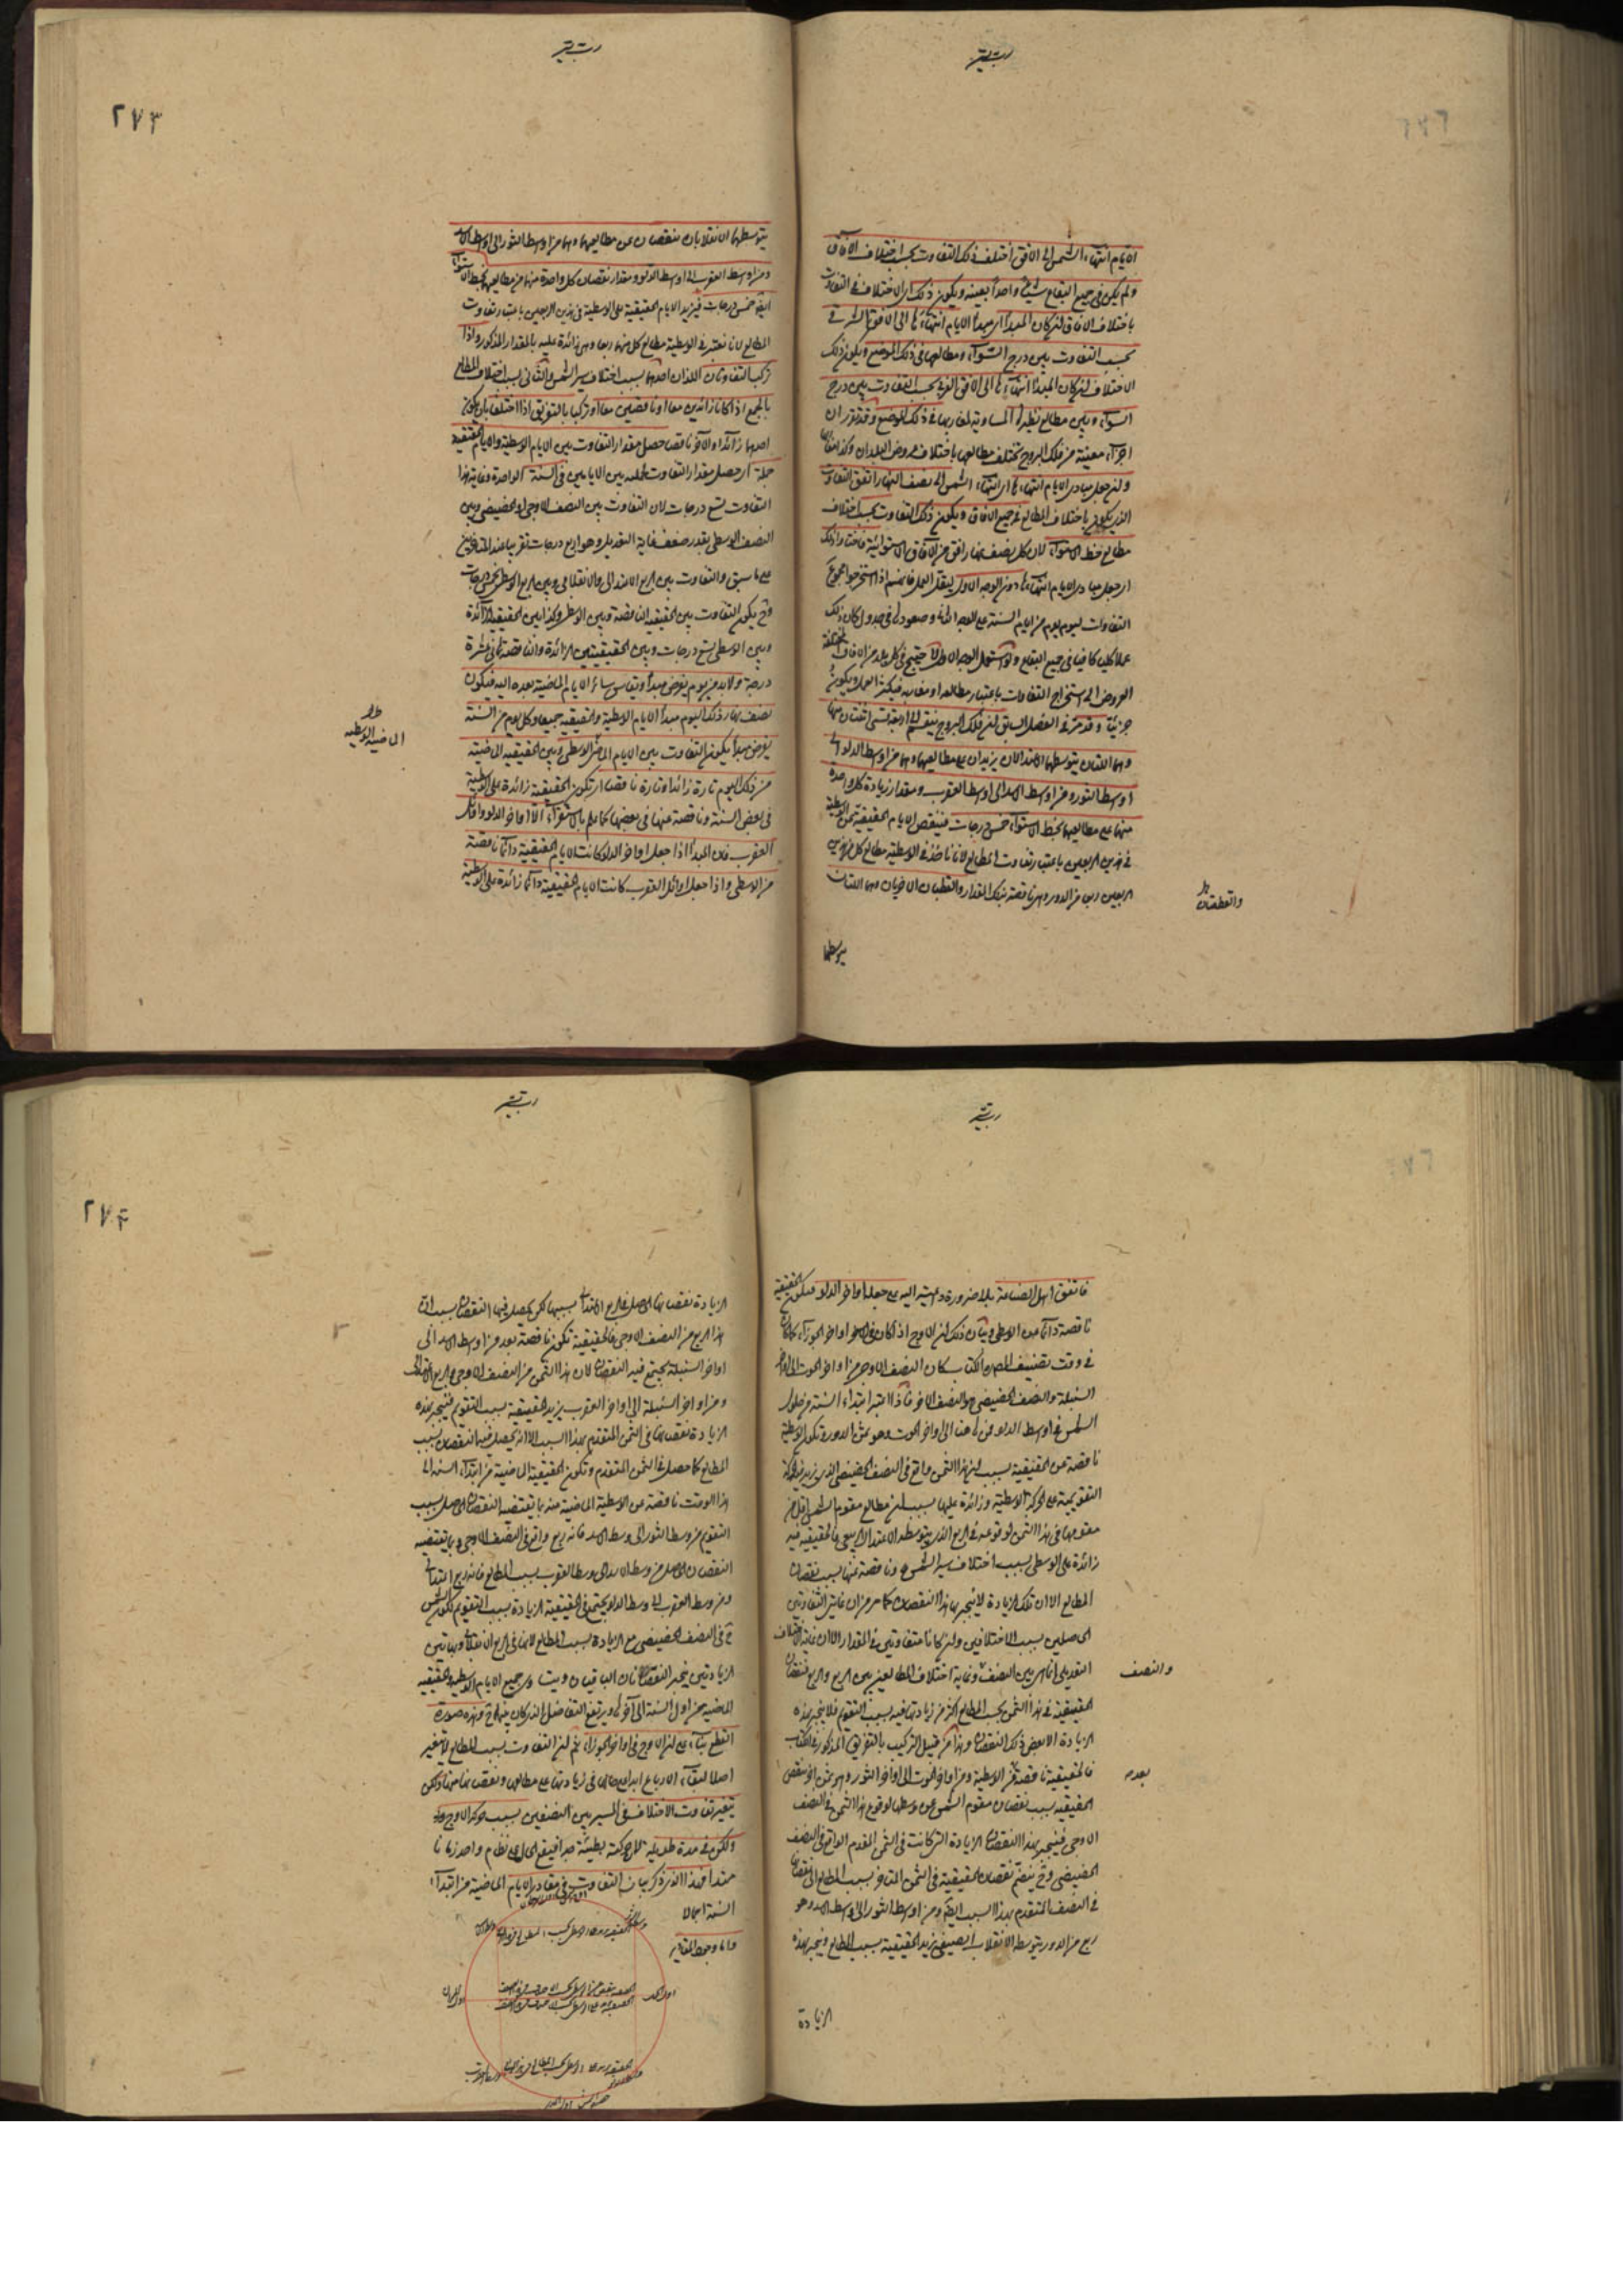 الايام انتهاء الشمس الى الافق اختلف ذلك التفاوت بحسب اختلاف الآفاق
ولم يكن في جميع البقاع شيئا واحدا بعينه ويكون ذلك اى الاختلاف في التفاوت
باختلاف الآفاق ان كان المبدأ اى مبدأ الايام انتهاءها الى الافق الشرقي
بحسب التفاوت بين درج السواء ومطالعها في ذلك الموضع ويكون ذلك
الاختلاف ان كان المبدأ انتهاءها الى الافق الغربي بحسب التفاوت بين درج
السواء وبين مطالع نظيرها المساوية لمغاربها في ذلك الموضع وقد تقرر ان
اجزاء معينة من فلك البروج تختلف مطالعها باختلاف عروض البلدان وكذا مغاربها
وان جعل مبادى الايام انتهاءها اى انتهاء الشمس الى نصف النهار اتفق التفاوت
الذى يكون باختلاف المطالع في جميع الآفاق ويكون ذلك التفاوت بحسب اختلاف
مطالع خط الاستواء لان كل نصف نهار افق من الآفاق الاستوائية فاختاروا ذلك
اى جعل مبادى الايام انتهاءها دون الوجه الاول ليقل العمل فانهم اذا استخرجوا مجموع
التفاوت ليوم يوم من ايام السنة على الوجه الثانى وضعوه في جدول كان ذلك
عملا كليا كافيا في جميع البقاع ولو استعمل الوجه الاول لاحتيج في كل بلد من الآفاق المختلفة
العروض الى استخراج التفاوت باعتبار مطالعه او مغاربه فيكثر العمل ويكون
جزئيا وقد مر في الفصل السابق ان فلك البروج ينقسم الى اربعة قسى اثنتان منها
وهما اللتان يتوسطهما الاعتدالان يزيدان على مطالعهما وهما من اوسط الدلو الى
اوسط الثور ومن اوسط الاسد الى اوسط العقرب ومقدار زيادة كل واحدة
منهما على مطالعها بخط الاستواء خمس درجات فينقص الايام الحقيقية عن الوسطية
في هذين الربعين باعتبار تفاوت المطالع لانا ناخذ في الوسطية مطالع كل من هذين
الربعين ربعا من الدور وهى ناقصة بتلك المقدار والقطبان الاخريان وهما اللتان
يتوسطهما
يتوسطهما الانقلابان ينقصان عن مطالعهما وهما من اوسط الثور الى اوسط الاسد
ومن اوسط العقرب الى اوسط الدلو ومقدار نقصان كل واحدة منهما من مطالعها بخط الاستواء
ايضا خمس درجات فيزيد الايام الحقيقية على الوسطية في هذين الربعين باعتبار تفاوت
المطالع لانا نعتبر في الوسطية مطالع كل منهما ربعا وهى زائدة عليه بالمقدار المذكور واذا
تركب التفاوتان اللذان احدهما بسبب اختلاف سير الشمس والثانى بسبب اختلاف المطالع
بالجمع اذا كانا زائدين معا او ناقصين معا او تركبا بالتفريق اذا اختلفا بان يكون
احدهما زائدا والآخر ناقصا حصل مقدار التفاوت بين الايام الوسطية والايام الحقيقية
جملة اى حصل مقدار التفاوت بجملته بين الايامين في السنة الواحدة وغاية هذا
التفاوت تسع درجات لان التفاوت بين النصف الاوجى او الحضيضى وبين
النصف الوسطى بقدر ضعف غاية التعديل وهو اربع درجات تقريبا عند المتاخرين
على ما سبق والتفاوت بين الربع الاعتدالى والانقلابى وبين الربع الوسطى خمس درجات
وح يكون التفاوت بين الحقيقية الناقصة وبين الوسطى وكذا بين الحقيقية الزائدة
وبين الوسطى تسع درجات وبين الحقيقيتين الزائدة والناقصة ثمانى عشرة
درجة ولا بد من يوم يفرض مبدأ ويقاس سائر الايام الماضية بعده اليه فيكون
نصف نهار ذلك اليوم مبدأ الايام الوسطية والحقيقية جميعا وكل يوم من السنة
يفرض مبدأ يكون التفاوت بين الايام الوسطى وبين الحقيقية الماضية
من ذلك اليوم تارة زائدا وتارة ناقصا اى تكون الحقيقية زائدة على الوسطية
في بعض السنة وناقصة عنها في بعضها كما علم بالاستقراء الا اواخر الدلو واوائل
العقرب فان المبدأ اذا جعل اواخر الدلو كانت الايام الحقيقية دائما ناقصة
من الوسطى واذا جعل اوائل العقرب كانت الايام الحقيقية دائما زائدة على الوسطية
الماضية الوسطية
٢٧٣
فاتفق اهل الصناعة بلا ضرورة داعية اليه على جعله اواخر الدلو فيكون الحقيقية
ناقصة دائما من الوسطى وبيان ذلك ان الاوج اذا كان في اواخر الجوزاء كما كان
في وقت تصنيف الكتاب كان النصف الاوجى من اواخر الحوت الى اواخر
السنبلة والنصف الحضيضى هو النصف الآخر فاذا اعتبر ابتداء السنة من حلول
الشمس في اوسط الدلو فمن هنا الى اواخر الحوت وهو ثمن الدورة تكون الوسطية
ناقصة عن الحقيقية بسبب ان هذا الثمن واقع في النصف الحضيضى الذى يزيد فيه الحركة
التقويمية على الحركة الوسطية وزائدة عليها بسبب ان مطالع مقوم الشمس اقل من
مقومها في هذا الثمن لوقوعه في الربع الذى يتوسطه الاعتدال الربيعى فالحقيقية فيه
زائدة على الوسطى بسبب اختلاف سير الشمس وناقصة عنها بسبب نقصان
المطالع الا ان تلك الزيادة لا ينجبر بها هذا النقصان كما مر من ان غايتى التفاوتين
الحاصلين بسبب الاختلافين وان كانا متفاوتين في المقدار الا ان غاية الاختلاف
التعديلى انما هى بين النصف وغاية اختلاف المطالع هى بين الربع والربع فنقصان
الحقيقية في هذا الثمن بحسب المطالع اكثر من زيادتها فيه بسبب التقويم فلا ينجبر بهذه
الزيادة الا بعض ذلك النقصان وهذا من قبيل التركيب بالتفريق المذكور في الكتاب
فالحقيقية ناقصة عن الوسطية ومن اواخر الحوت الى اواخر الثور وهو ثمن آخر ينقص
الحقيقية بسبب نقصان مقوم الشمس عن وسطها لوقوع هذا الثمن في النصف
الاوجى فينجبر بهذا النقصان الزيادة التى كانت في الثمن المقدم الواقع في النصف
الحضيضى وح ينضم نقصان الحقيقية في الثمن المتاخر بسبب المطالع الى النقصان
في النصف المتقدم بهذا السبب ايضا ومن اوسط الثور الى اوسط الاسد وهو
ربع من الدور يتوسطه الانقلاب الصيفى يزيد الحقيقية بسبب المطالع وينجبر بهذه
والنصف
بعده
الزيادة
الزيادة نقصانها الحاصل في الربع الاعتدالى بسببها لكن يحصل فيها النقصان بسبب ان
هذا الربع من النصف الاوجى فالحقيقية تكون ناقصة بعد ومن اوسط الاسد الى
اواخر السنبلة يجتمع فيه النقصان لان هذا الثمن من النصف الاوجى والربع الاعتدالى
ومن اواخر السنبلة الى اواخر العقرب يزيد الحقيقية بسبب التقويم فينجبر بهذه
الزيادة نقصانها في الثمن المتقدم بهذا السبب الا انه يحصل فيها نقصان بسبب
المطالع كما حصل في الثمن المتقدم وتكون الحقيقية الماضية من ابتداء السنة الى
هذا الوقت ناقصة عن الوسطية الماضية منه بما يقتضيه النقصان الحاصل بسبب
التقويم من وسط الثور الى وسط الاسد فانه ربع واقع في النصف الاوجى وبما يقتضيه
النقصان الحاصل من وسط الاسد الى وسط العقرب بسبب المطالع فانه ربع اعتدالى
ومن وسط العقرب الى وسط الدلو يجتمع في الحقيقية الزيادة بسبب التقويم لكون الشمس
ح في النصف الحضيضى مع الزيادة بسبب المطالع لانها في الربع الانقلابى وبهاتين
الزيادتين ينجبر النقصانان الباقيان ويتساوى جميع الايام الوسطية والحقيقية
الماضية من اول السنة الى آخرها ويرتفع التفاضل الذى كان بينهما ح وهذه صورة
القطع بناء على ان الاوج في اواخر الجوزاء ثم ان التفاوت بسبب المطالع لا يتغير
اصلا لبقاء الارباع ابدا على حالها في زيادتها على مطالعها ونقصانها عنها ولكن
يتغير تفاوت الاختلاف في المسير بين النصفين بسبب حركة الاوج
ولكن في مدة طويلة لان حركته بطيئة جدا فيبقى الحال على نظام واحد زمانا
ممتدا فهذا الذى ذكر بيان التفاوت في مقادير الايام الماضية من ابتداء
السنة اجمالا
واما وجوه المقادير
٢٧٤